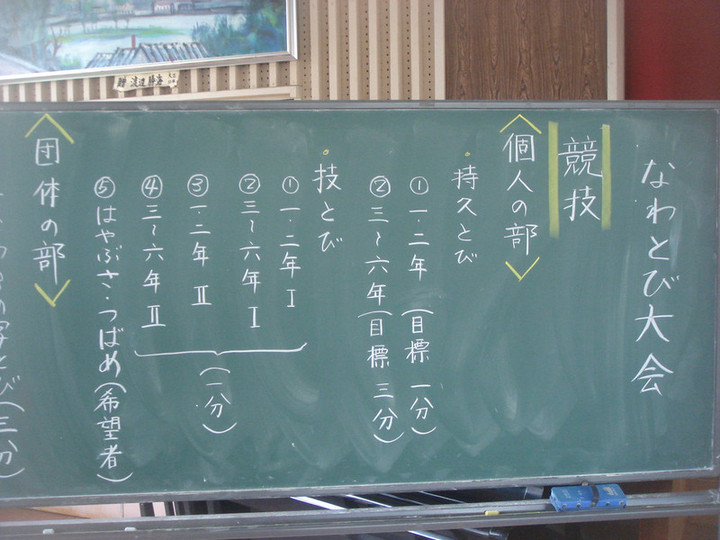 なわとび大会
競技
〈個人の部〉
・持久とび
① 一・二年(目標 一分)
② 三〜六年(目標 三分)
・技とび
① 一・二年 Ⅰ
② 三〜六年 Ⅰ
③ 一・二年 Ⅱ
④ 三〜六年 Ⅱ
(一分)
⑤ はやぶさ・つばめ(希望者)
〈団体の部〉
とび(三分)